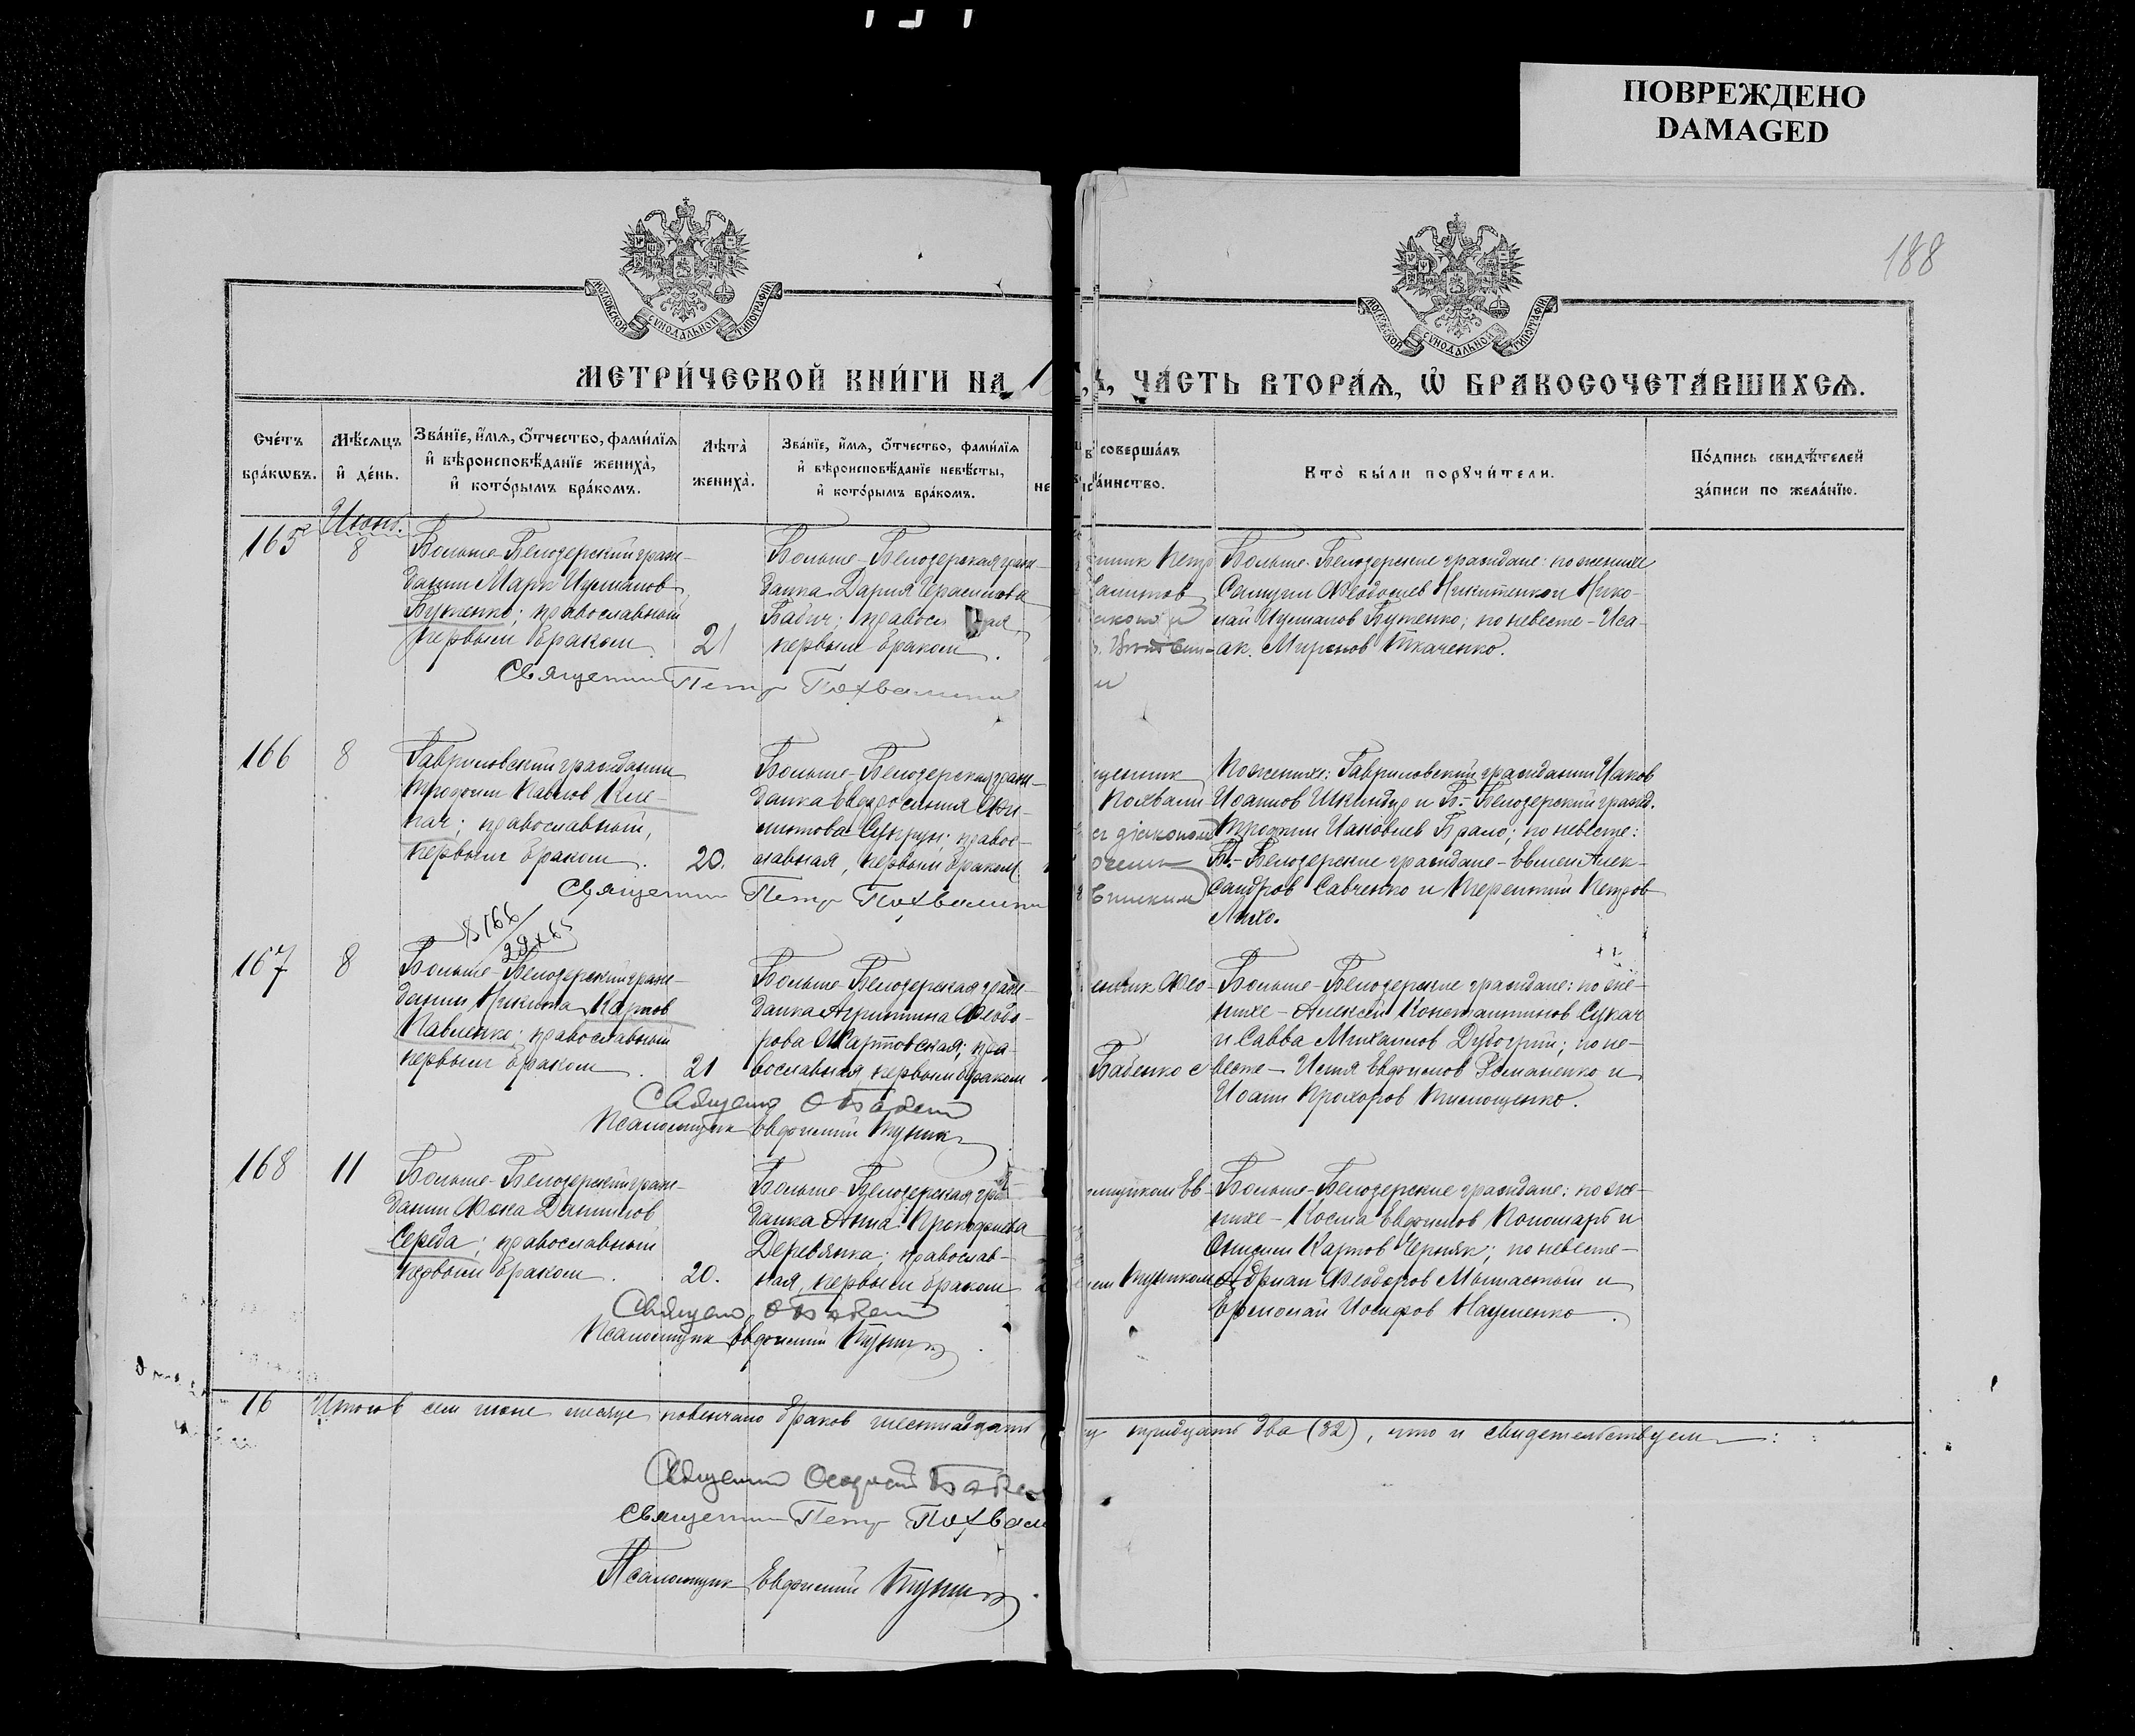 ПОВРЕЖДЕНО
DAMAGED
188
МОСКОВСКОЙ СѴНОДАЛЬНОЙ ТИПОГРАФІИ
МОСКОВСКОЙ СѴНОДАЛЬНОЙ ТИПОГРАФІИ
МЕТРИ́ЧЕСКОЙ КНИ́ГИ НА 1
ЧА́СТЬ ВТОРА́Ѧ, Ѽ БРАКОСОЧЕТА́ВШИХСѦ.
Сче́тъ бра́кѡвъ.
Мѣ́сѧцъ и҆ де́нь.
Зва́нїе, и҆́мѧ, о҆́тчество, фами́лїѧ и҆ вѣроисповѣ́данїе жениха̀, и҆ кото́рымъ бра́комъ.
Лѣ́та жениха̀.
Зва́нїе, и҆́мѧ, о҆́тчество, фами́лїѧ и҆ вѣроисповѣ́данїе невѣ́сты, и҆ кото́рымъ бра́комъ.
соверша́лъ
та́инство.
Кто̀ бы́ли порꙋчи́тели.
По́дпись свидѣ́телей за́писи по жела́нїю.
Июнь.
165
8
Больше-Белозерский граж-
данин Марк Иулианов
Бутенко; православный
первым браком
21
Больше-Белозерская граж-
данка Дария Герасимова
Бабич; правос ная,
первым браком.
Больше-Белозерские граждане: по женихе
Самуил Феодосиев Никитенко и Нико-
лай Иулианов Бутенко; по невесте - Иса-
ак Миронов Ткаченко.
Священник Петр Похвалит
166
8
Гавриловский гражданин
Трофим Павлов Кли-
пач; православный,
первым браком.
20.
Больше-Белозерская граж-
данка Евфросиния Фи-
липпова Супрун; правос-
лавная, первым браком.
щенник
Похвали
с діаконом
По женихе: Гавриловский гражданин Иаков
Иоаннов Шкиндер и Б.-Белозерский гражд.
Трофим Иаковлев Брало; по невесте:
Б.-Белозерские граждане - Евмен Алек-
сандров Савченко и Терентий Петров
Лихо.
Священник Петр Похвалит
167
8
Больше-Белозерский граж-
данин Никита Карпов
Павленко; православный
первым браком.
21
Больше-Белозерская граж-
данка Агриппина Феодо-
рова Мартовская; пра-
вославная первым браком
енник Фео-
Бабенко с
Больше-Белозерские граждане: по же-
нихе - Алексей Константинов Сукач
и Савва Михаилов Дубогрий; по не-
весте - Илия Евфимов Романенко и
Иоанн Прохоров Тимощенко.
Священ Ѳ Бабенко
Псаломщик Евфимий Тупик
168
11
Больше-Белозерский граж-
данин Фока Даниилов
Середа; православный
первым браком.
20.
Больше-Белозерская граж
данка Анна Прокофиева
Деревянка; православ-
ная, первым браком
мщиком Ев-
Тупиком
Больше-Белозерские граждане: по же-
нихе - Косма Евфимов Пономарь и
Онисим Карпов Черняк; по невесте -
Адриан Феодоров Мытастый и
Ермолай Иосифов Науменко.
Священ Ѳ Бабенко
Псаломщик Евфимий Тупик
16
Итого в сем июне месяце повенчано браков шестнадцать
тридцать два (32), что и свидетельствуем:
Священник Бабен
Священник Петр Похвали
Псаломщик Евфимий Тупик